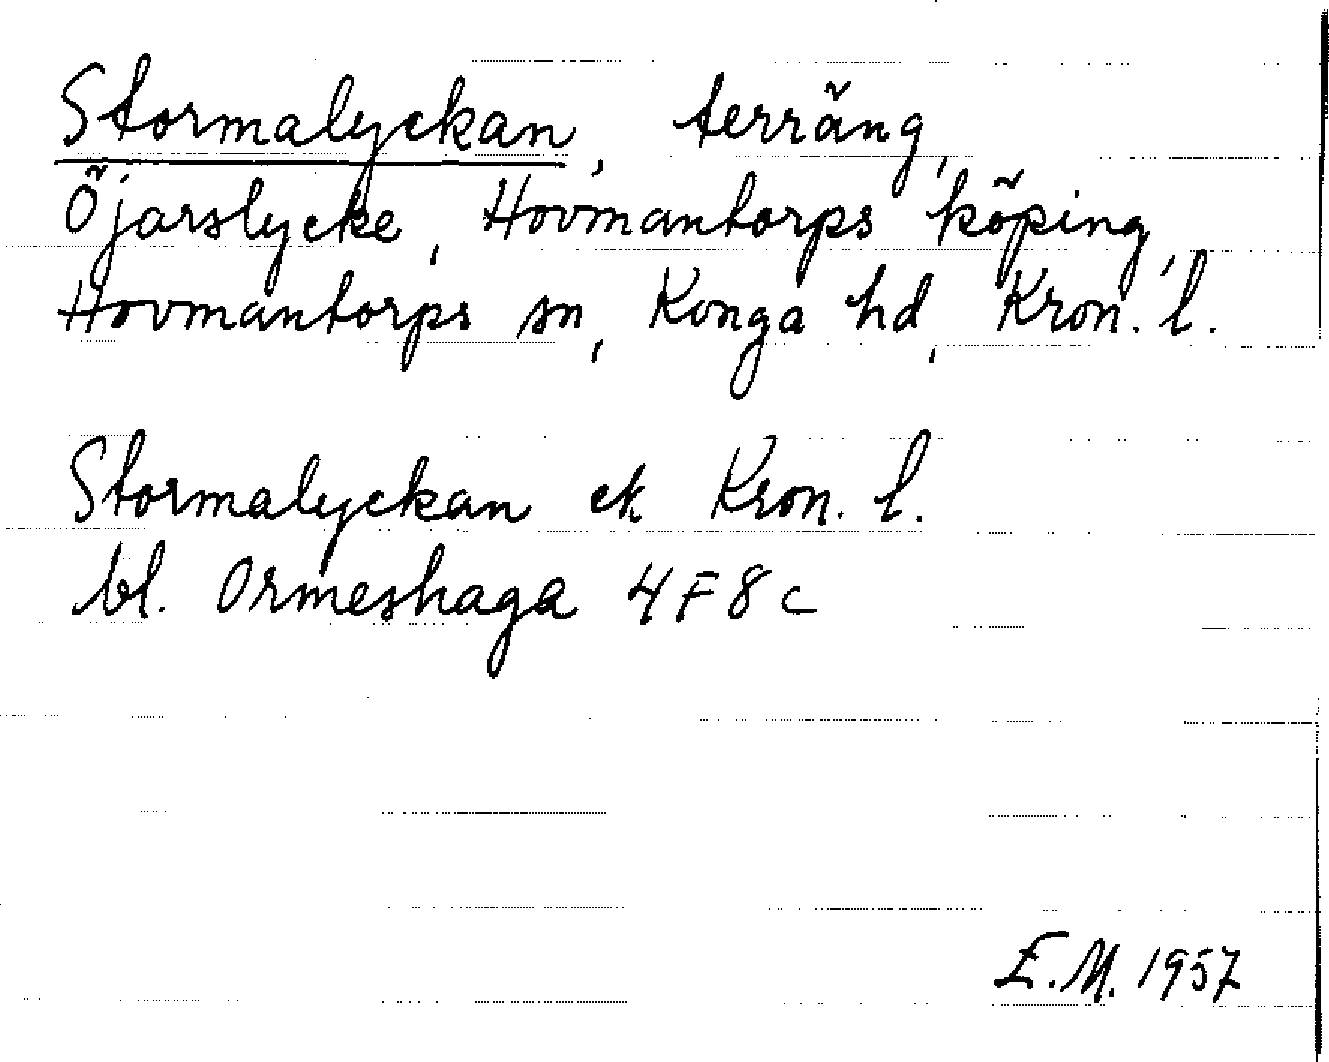 Stormalyckan, terräng,
Öjarslycke, Hovmantorps köping,
Hovmantorps sn, Konga hd, Kron. l.
Stormalyckan ek Kron. l.
bl. Ormeshaga 4F8c
E.M. 1957